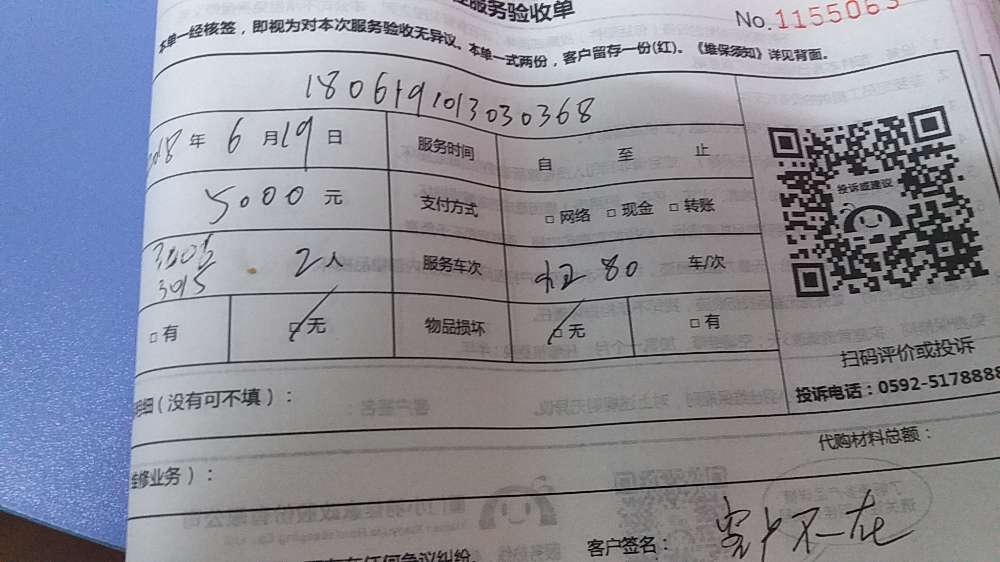 服务验收单
No.1155063
本单一经核签，即视为对本次服务验收无异议。本单一式两份，客户留存一份(红)。《维保须知》详见背面。
1806191013030368
2018年6月19日 服务时间 自 至 止
5000元 支付方式 □网络 □现金 □转账
3015 2人 服务车次 80 车/次
□有 □无 物品损坏 □无 □有
投诉或建议
扫码评价或投诉
投诉电话：0592-5178888
明细(没有可不填)：
代购材料总额：
维修业务)：
存在任何争议纠纷
客户签名： 客户不在